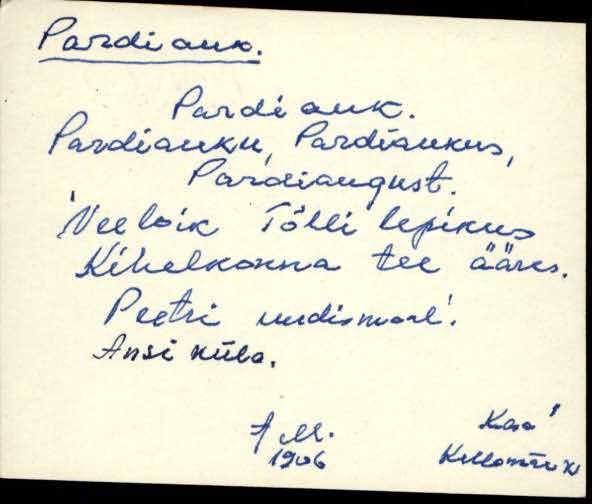 Pardi auk.
Pardi auk.
Pardiauku, Pardiaukus,
Pardiaugust.
Veeloik Tõlli lepikus
Kihelkonna tee ääres.
Peetri uudismaal.
Ansi küla.
M.
1906